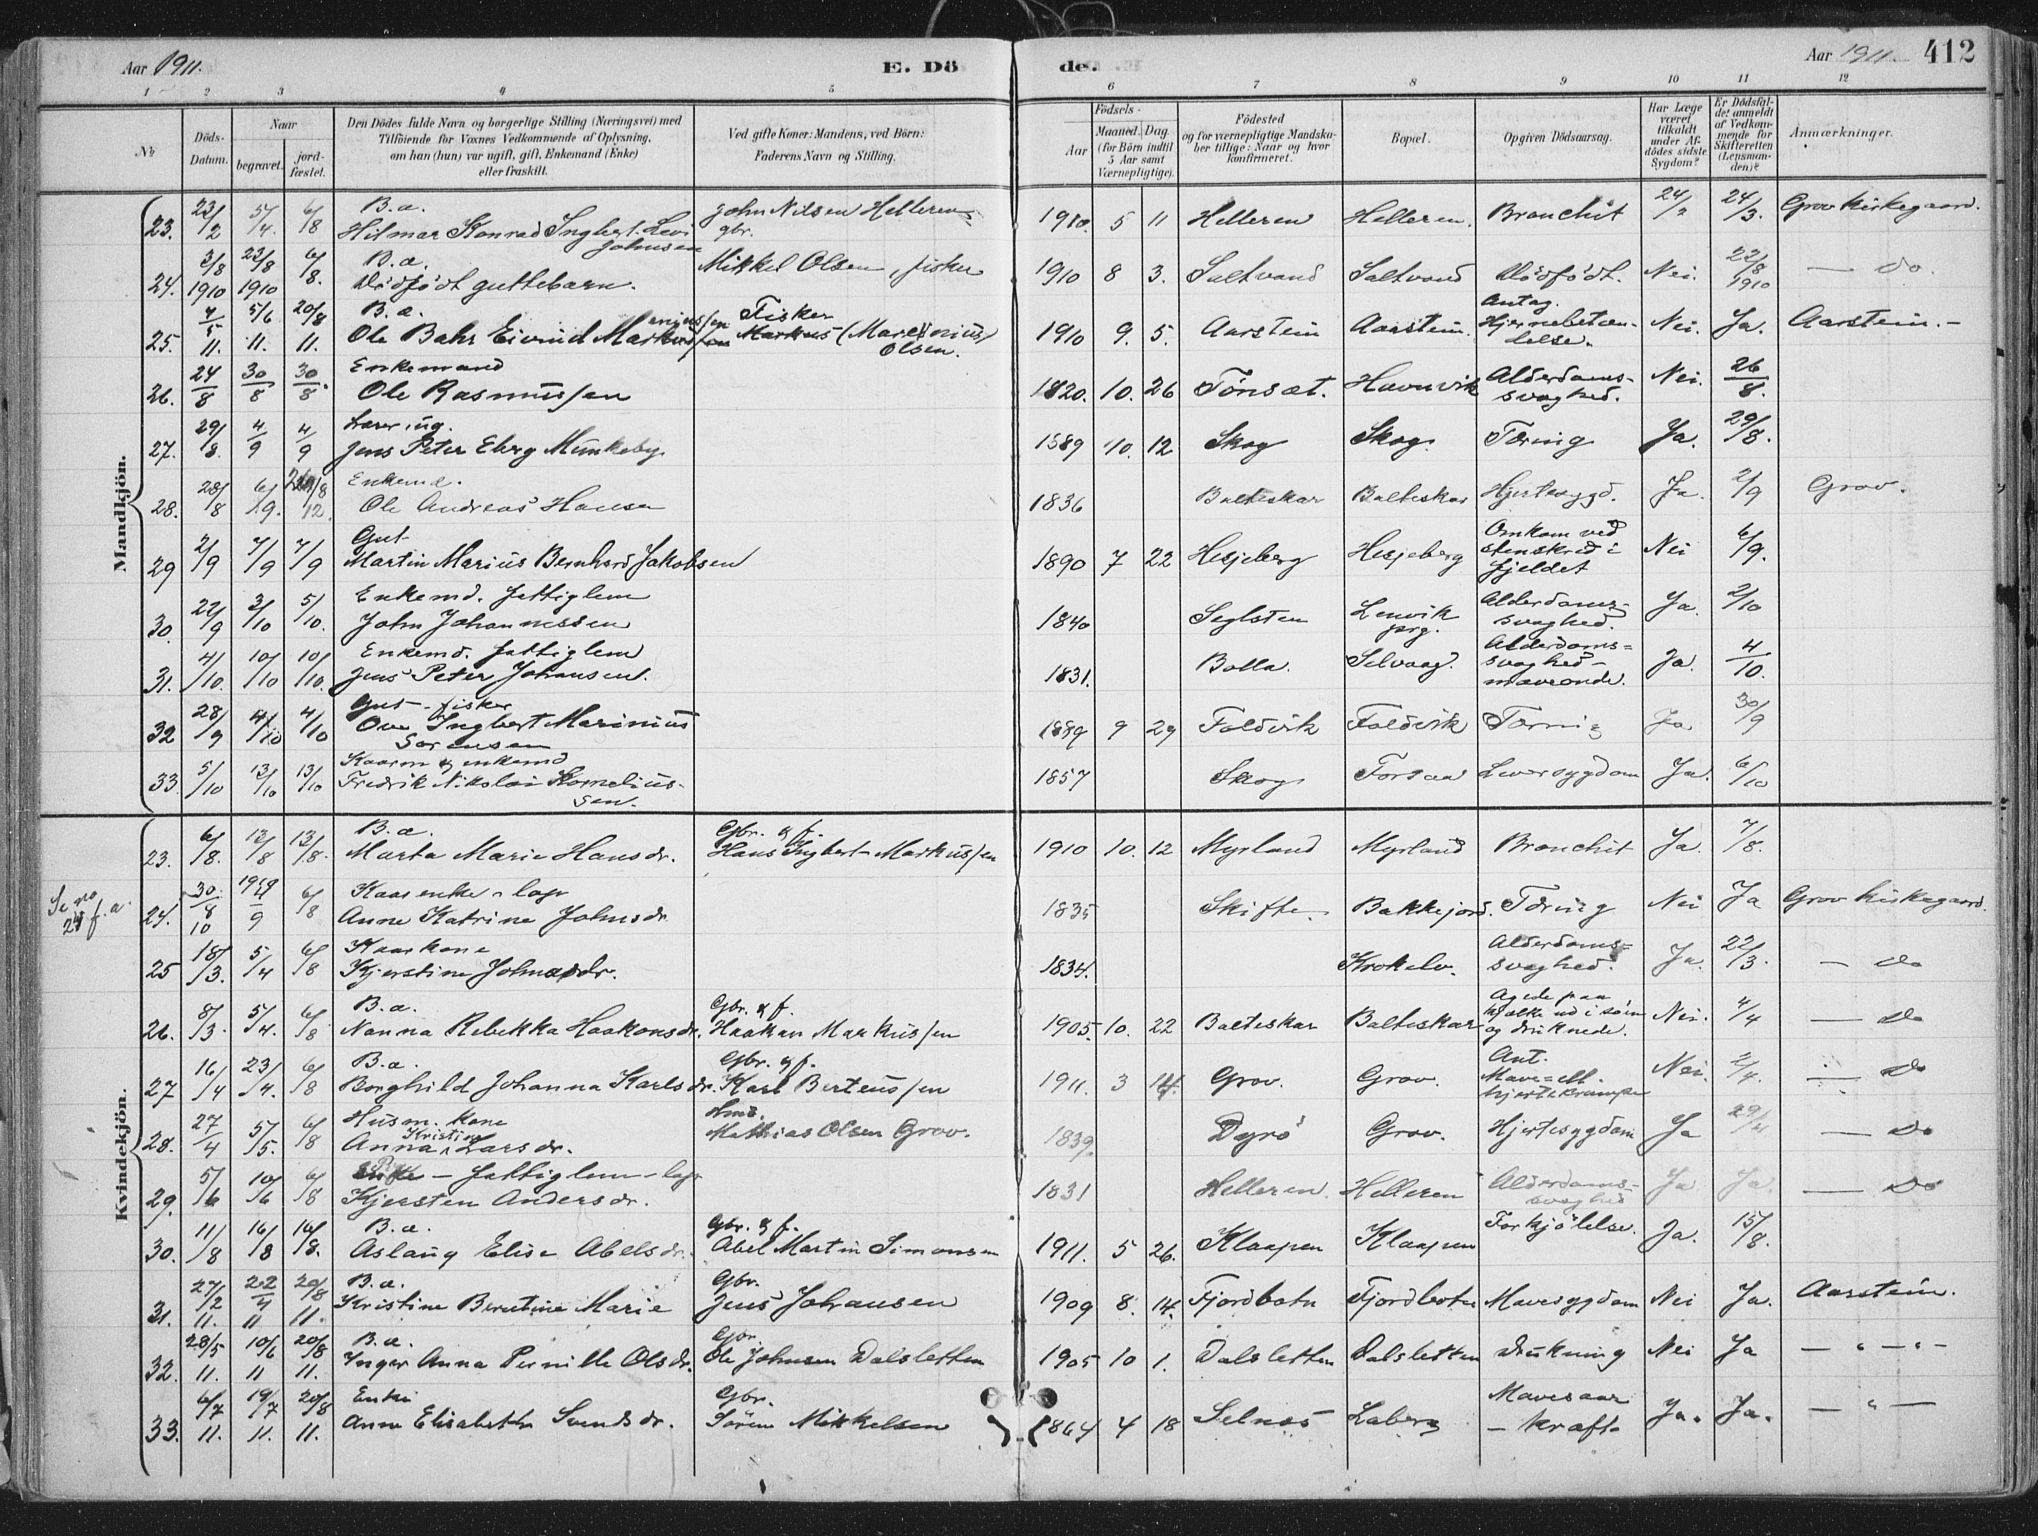 Aar 1911.
E. Dö
de.
Aar 1911
412
1
2
3
4
5
6
7
8
9
10
11
12
No
Döds-Datum.
Naar
begravet.
jord-fæstet.
Den Dödes fulde Navn og borgerlige Stilling (Næringsvei) med
Tilföiende for Voxnes Vedkommende af Oplysning,
om han (hun) var ugift, gift, Enkemand (Enke)
eller fraskilt.
Ved gifte Koner: Mandens, ved Börn:
Faderens Navn og Stilling.
Aar
Födsels-
Maaned. Dag.
(for Börn indtil
5 Aar samt
Værnepligtige).
Födested
og for værnepligtige Mandska-
ber tillige: Naar og hvor
konfirmeret.
Bopæl.
Opgiven Dödsaarsag.
Har Læge
været
tilkaldt
under Af-
dödes sidste
Sygdom?
Er Dödsfal-
det anmeldt
af Vedkom-
mende for
Skifteretten
(Lensman-
den)?
Anmærkninger.
Mandkjön.
23. 23/2 5/4. 6/8 B.a. Hilmar Konrad Ingbert Levi Johnsen John Nilsen Helleren gbr. 1910. 5 11 Helleren Helleren. Bronchit 24/2 24/3. Grov kirkegaard.
24. 3/8 1910 23/8 1910 6/8. B.a. Dødfödt guttebarn. Mikkel Olsen, fisker 1910 8 3. Saltvand Saltvand Dödfödt. Nei. 22/8 1910 — do.
25. 4/5 11. 5/6 11. 20/8 11. B.a. Ole Bahr Eivind Markussen Fisker Markus (Mareninius) Olsen. 1910 9. 5. Aarstein Aarstein. Antag. Hjernebetændelse. Nei. Ja. Aarstein.-
26. 24/8 30/8 30/8. Enkemand Ole Rasmussen 1820. 10. 26 Tönsæt. Havnvik Alderdoms-svaghed. Nei. 26/8.
27. 29/8. 4/9 4/9 Jens Peter Eberg Munkeby 1889 10. 12 Skog Skog. Tæring Ja. 29/8.
28. 28/8 6/9. Enkemd. Ole Andreas Hansen 1836 Balteskar Balteskar Hjertesygd. Ja. 2/9 Grov.
29 2/9 7/9 7/9 Gut Martin Marius Bernhard Jakobsen 1890 7 22 Hesjeberg Hesjeberg Omkom ved stenskred i fjeldet Nei 6/9.
30. 22/9 3/10 5/10. Enkemd. fattiglem John Johannessen 1840 Seglsten Lenvik prg. Alderdoms-svaghed. Ja. 2/10
31. 4/10. 10/10 10/10. Enkemd. fattiglem Jens Peter Johansen. 1831. Balla. Selvaag. Alderdoms=svaghed-maveonde. Ja. 4/10.
32 28/9 4/10 4/10 Gut - fisker Ove Ingbert Marinius Sørensen 1889 9 29 Foldvik Foldvik Tæring Ja 30/9
33. 5/10 13/10 13/10 Kaarm & enkemd Fredrik Nikolai Kornelius-sen. 1857 Skog Forsaa Leversygdom Ja. 6/10
Kvindekjön.
23. 6/8. 13/8 13/8. B.a. Marta Marie Hansdr. Gbr. & f. Hans Ingbert Markussen 1910 10. 12 Myrland Myrland Bronchit Ja. 7/8.
Se no 24 f.a.
24. 30/8 10 6/8 Kaarenke - lap Anne Katrine Johnsdr. 1835 Skifte Bakkejord. Tæring Nei Ja Grov kirkegaard.
25 18/3. 5/4 6/8 Kaarkone Kjerstine Johnsdr. 1834. Krokelv. Alderdoms=svaghed. Ja. 22/3. — do
26. 8/3. 5/4. 6/8 B.a. Nanna Rebekka Haakonsdr. Gbr. & f. Haakon Markussen 1905. 10. 22 Balteskar Balteskar Agede paa kjælke ud i søin og druknede. Nei. 4/4 — do
27 16/4 23/4. 6/8 B.a. Borghild Johanna Karlsdr. Gbr. & f. Karl Berteussen 1911. 3 14. Grov. Grov. Ant. Mave= ell. hjertekrampe Nei. 2/4. — Do
28. 27/4 5/5. 6/8 Husm. kone Anna Kristine Larsdr. Hmd. Mathias Olsen Grov. 1839. Dyrö Grov. Hjertesygdom Ja 29/4 — Do
29. 5/6 10/6 6/8 - fattiglem - lap Kjersten Andersdr. 1831 Helleren. Helleren Alderdoms-svaghed Ja Ja. — Do
30. 11/8 16/8 16/8. B.a. Aslaug Elise Abelsdr. Gbr. & f. Abel Martin Simonsen 1911. 5 26. Klaapen Klaapen Forkjölelse. Ja. 15/8.
31. 27/2 11. 22/4 11 20/8 11. B.a. Kristine Berntine Marie Gbr. Jens Johansen 1909 8. 14. Fjordbotn Fjordbotn Mavesygdom Nei Ja. Aarstein.
32. 28/5 11. 10/6 11 20/8 11. B.a. Inger Anna Pernille Olsdr. Gbr. Ole Johnsen Dalsletten 1905 10 1. Dalsletten Dalsletten Drukning Nei Ja — " — " —
33. 6/7 11. 19/7 11. 20/8 11. Enke Anne Elisabeth Svendsdr. Gbr. Sören Mikkelsen 1864 4 18 Selnæs Laberg Mavesaar - kræft. Ja. Ja. — " —